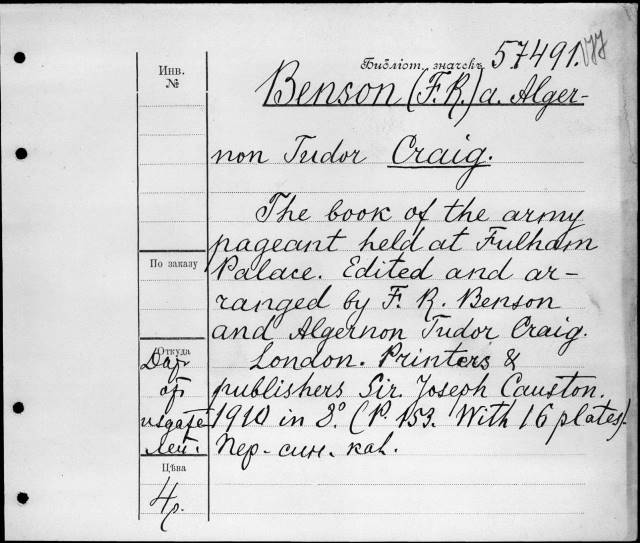 Инв.
№
Библіот. значекъ 57491.
Benson (F.R.) a. Alger-
non Tudor Craig.
The book of the army
pageant held at Fulham
Palace. Edited and ar-
ranged by F. R. Benson
and Algernon Tudor Craig.
London. Printers &
publishers Sir. Joseph Causton.
1910 in 8°. (P. 153. With 16 plates).
Пер. син. кал.
По заказу
Откуда
Дар
от
издате
лей.
Цѣна
4р.